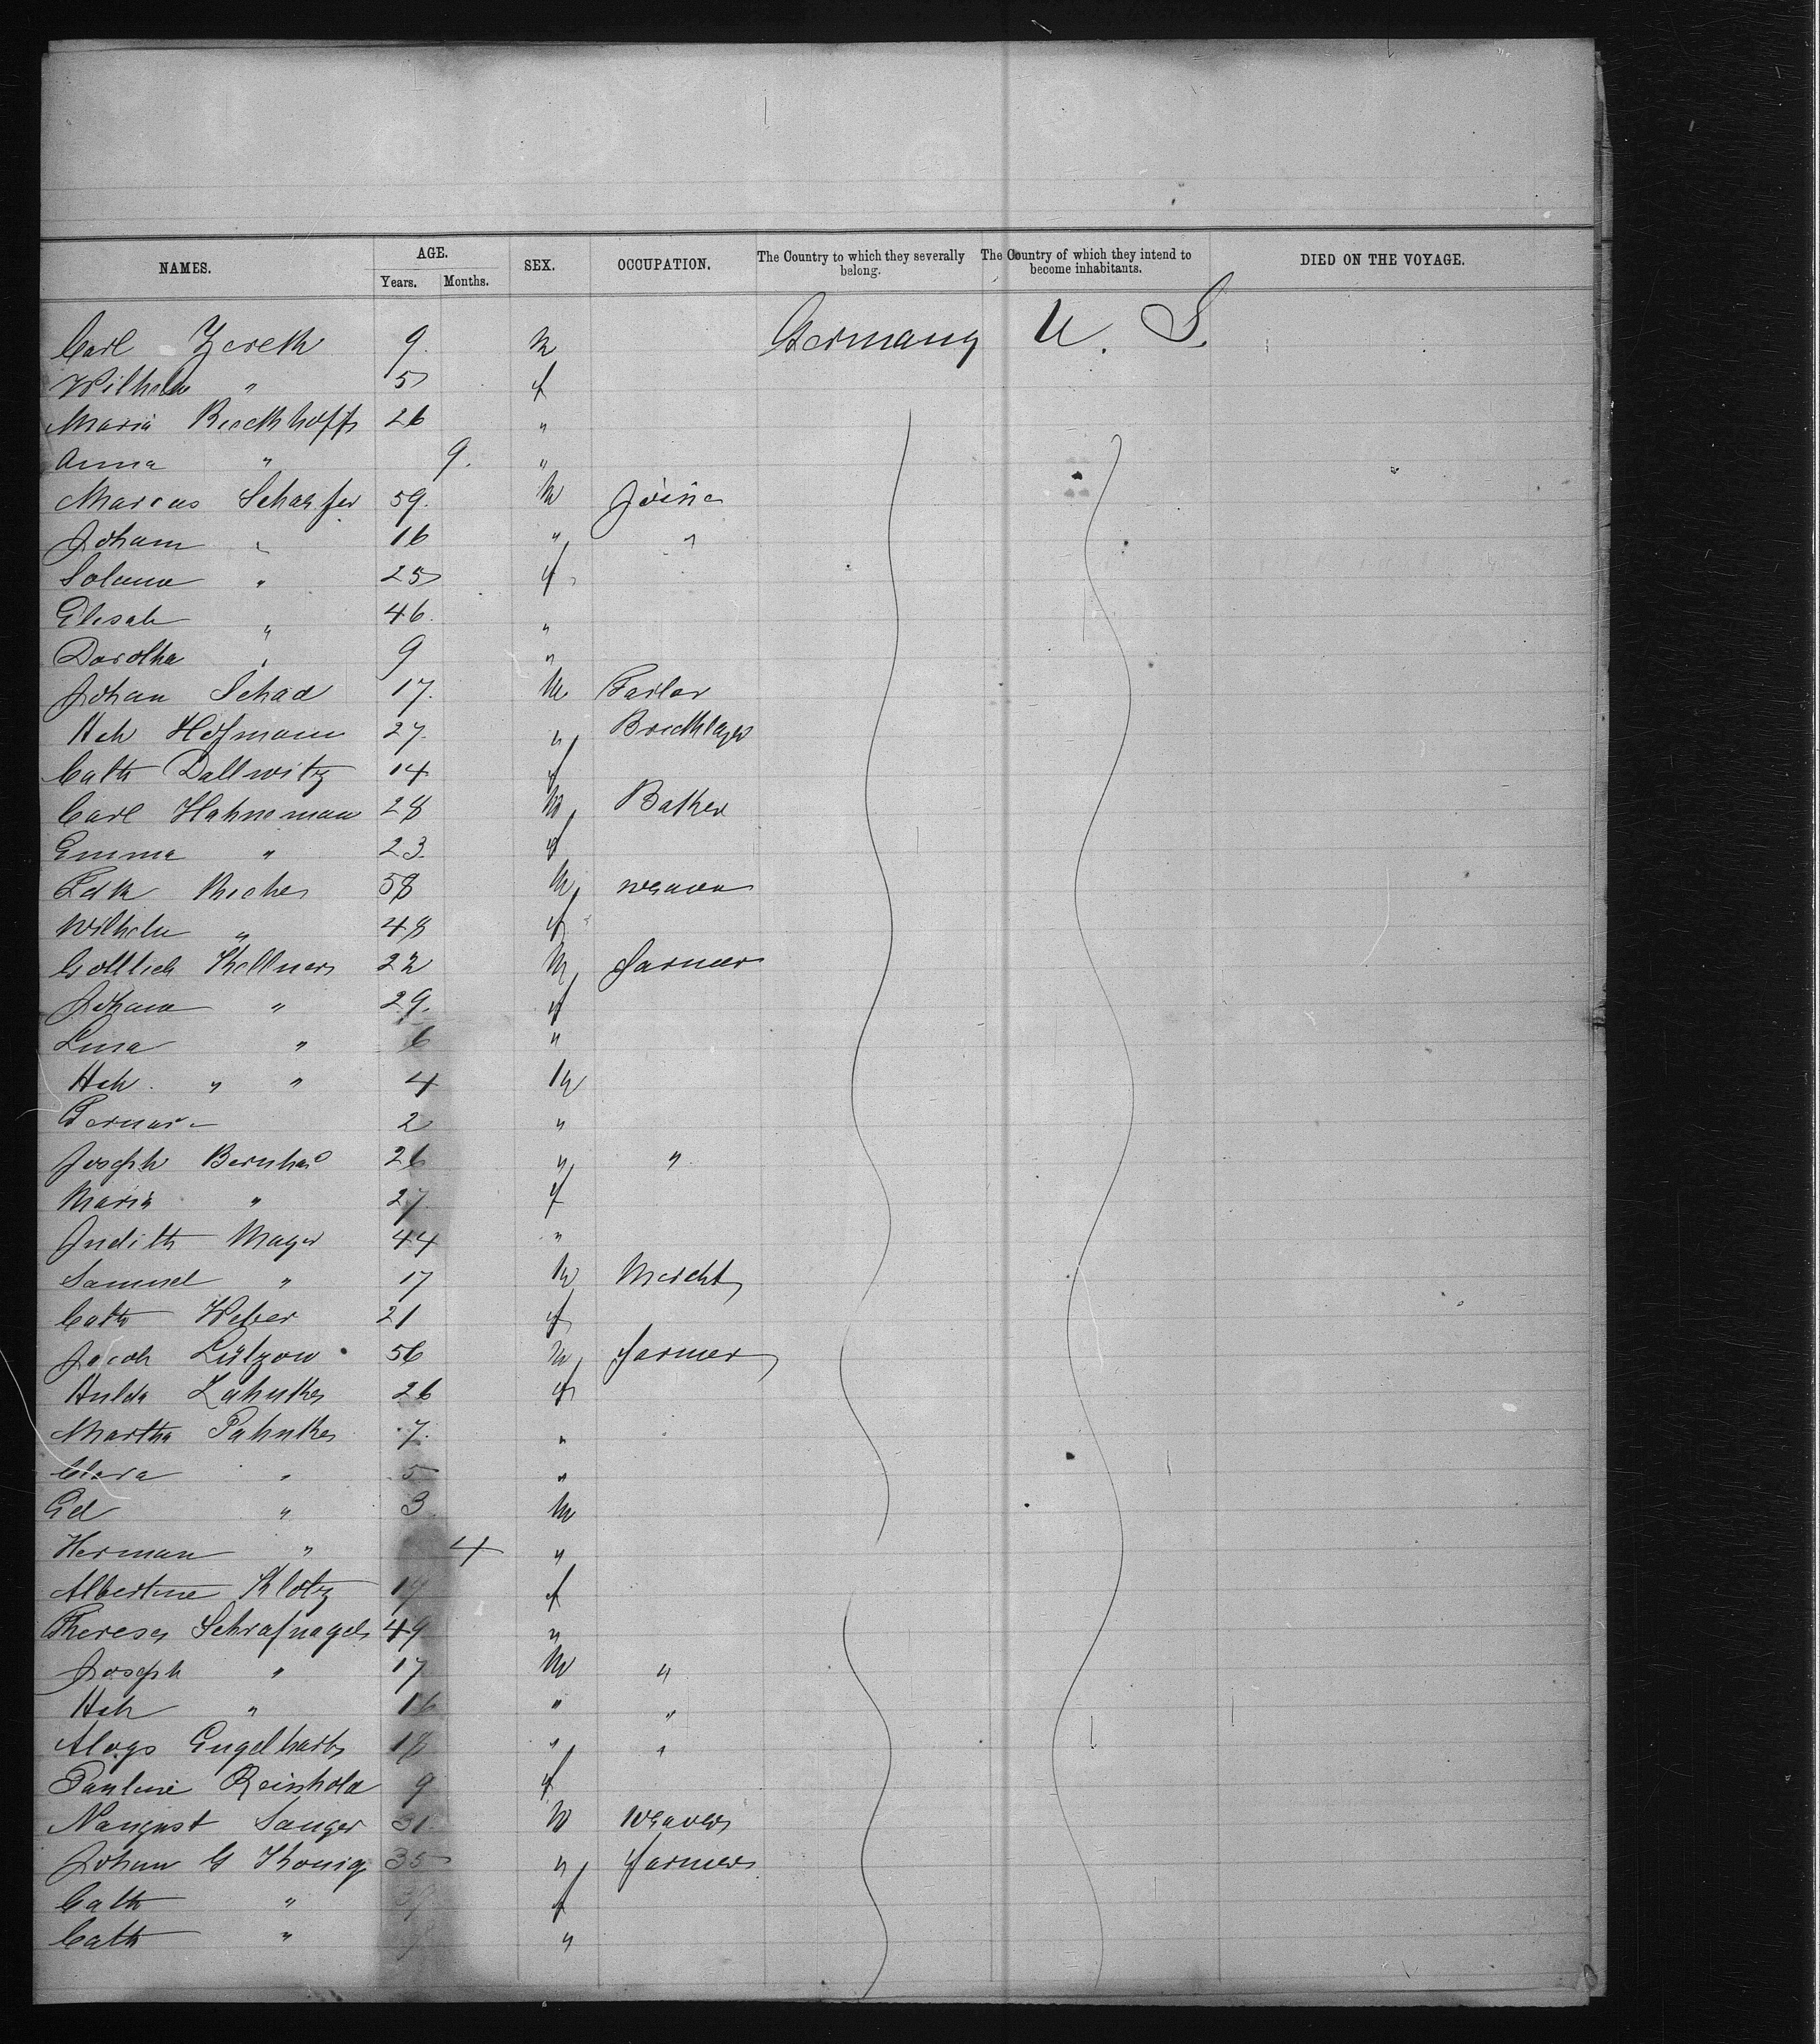 NAMES. AGE. Years. Months. SEX. OCCUPATION. The Country to which they severally belong. The Country of which they intend to become inhabitants. DIED ON THE VOYAGE.
Carl Zereth 9. M Germany U. S.
Wilhelm " 5 f
Maria 26 "
Anna " 9. "
Marcus Scharfer 59. M
Johann " 16 " "
25 f
Elisab " 46. "
Dorotha " 9 "
Johan Schad 17. M Tailor
Hch Hofmann 27. " Bricklayer
Cath Dallwitz 14 f
Carl Hahneman 28 M Baker
Emma " 23. f
58 M
Wilhelm " 48 f
Gottlieb Kellner 22 M farmer
Johana " 29. f
Lina " 6 "
Hch. " " 4 M
2 "
Joseph Bernhard 26 " "
Maria " 27. f
Judith Mayer 44 "
Samuel " 17 M Mercht
Cath Weber 21 f
Jacob Lützow 56 M farmer
Hulda 26 f
Martha Pahnke 7. "
Clara " 5 "
Ed " 3. M
Herman " 4 "
Albertine Klotz f
Theresa Schrafnagel 49 "
Joseph " 17 M "
Hch " 16 " "
Aloys Engelhart 18 " "
Pauline Reinhold 9 f
Sanger 31. M weaver
Johan G Konig 35 " farmer
Cath " f
Cath " "